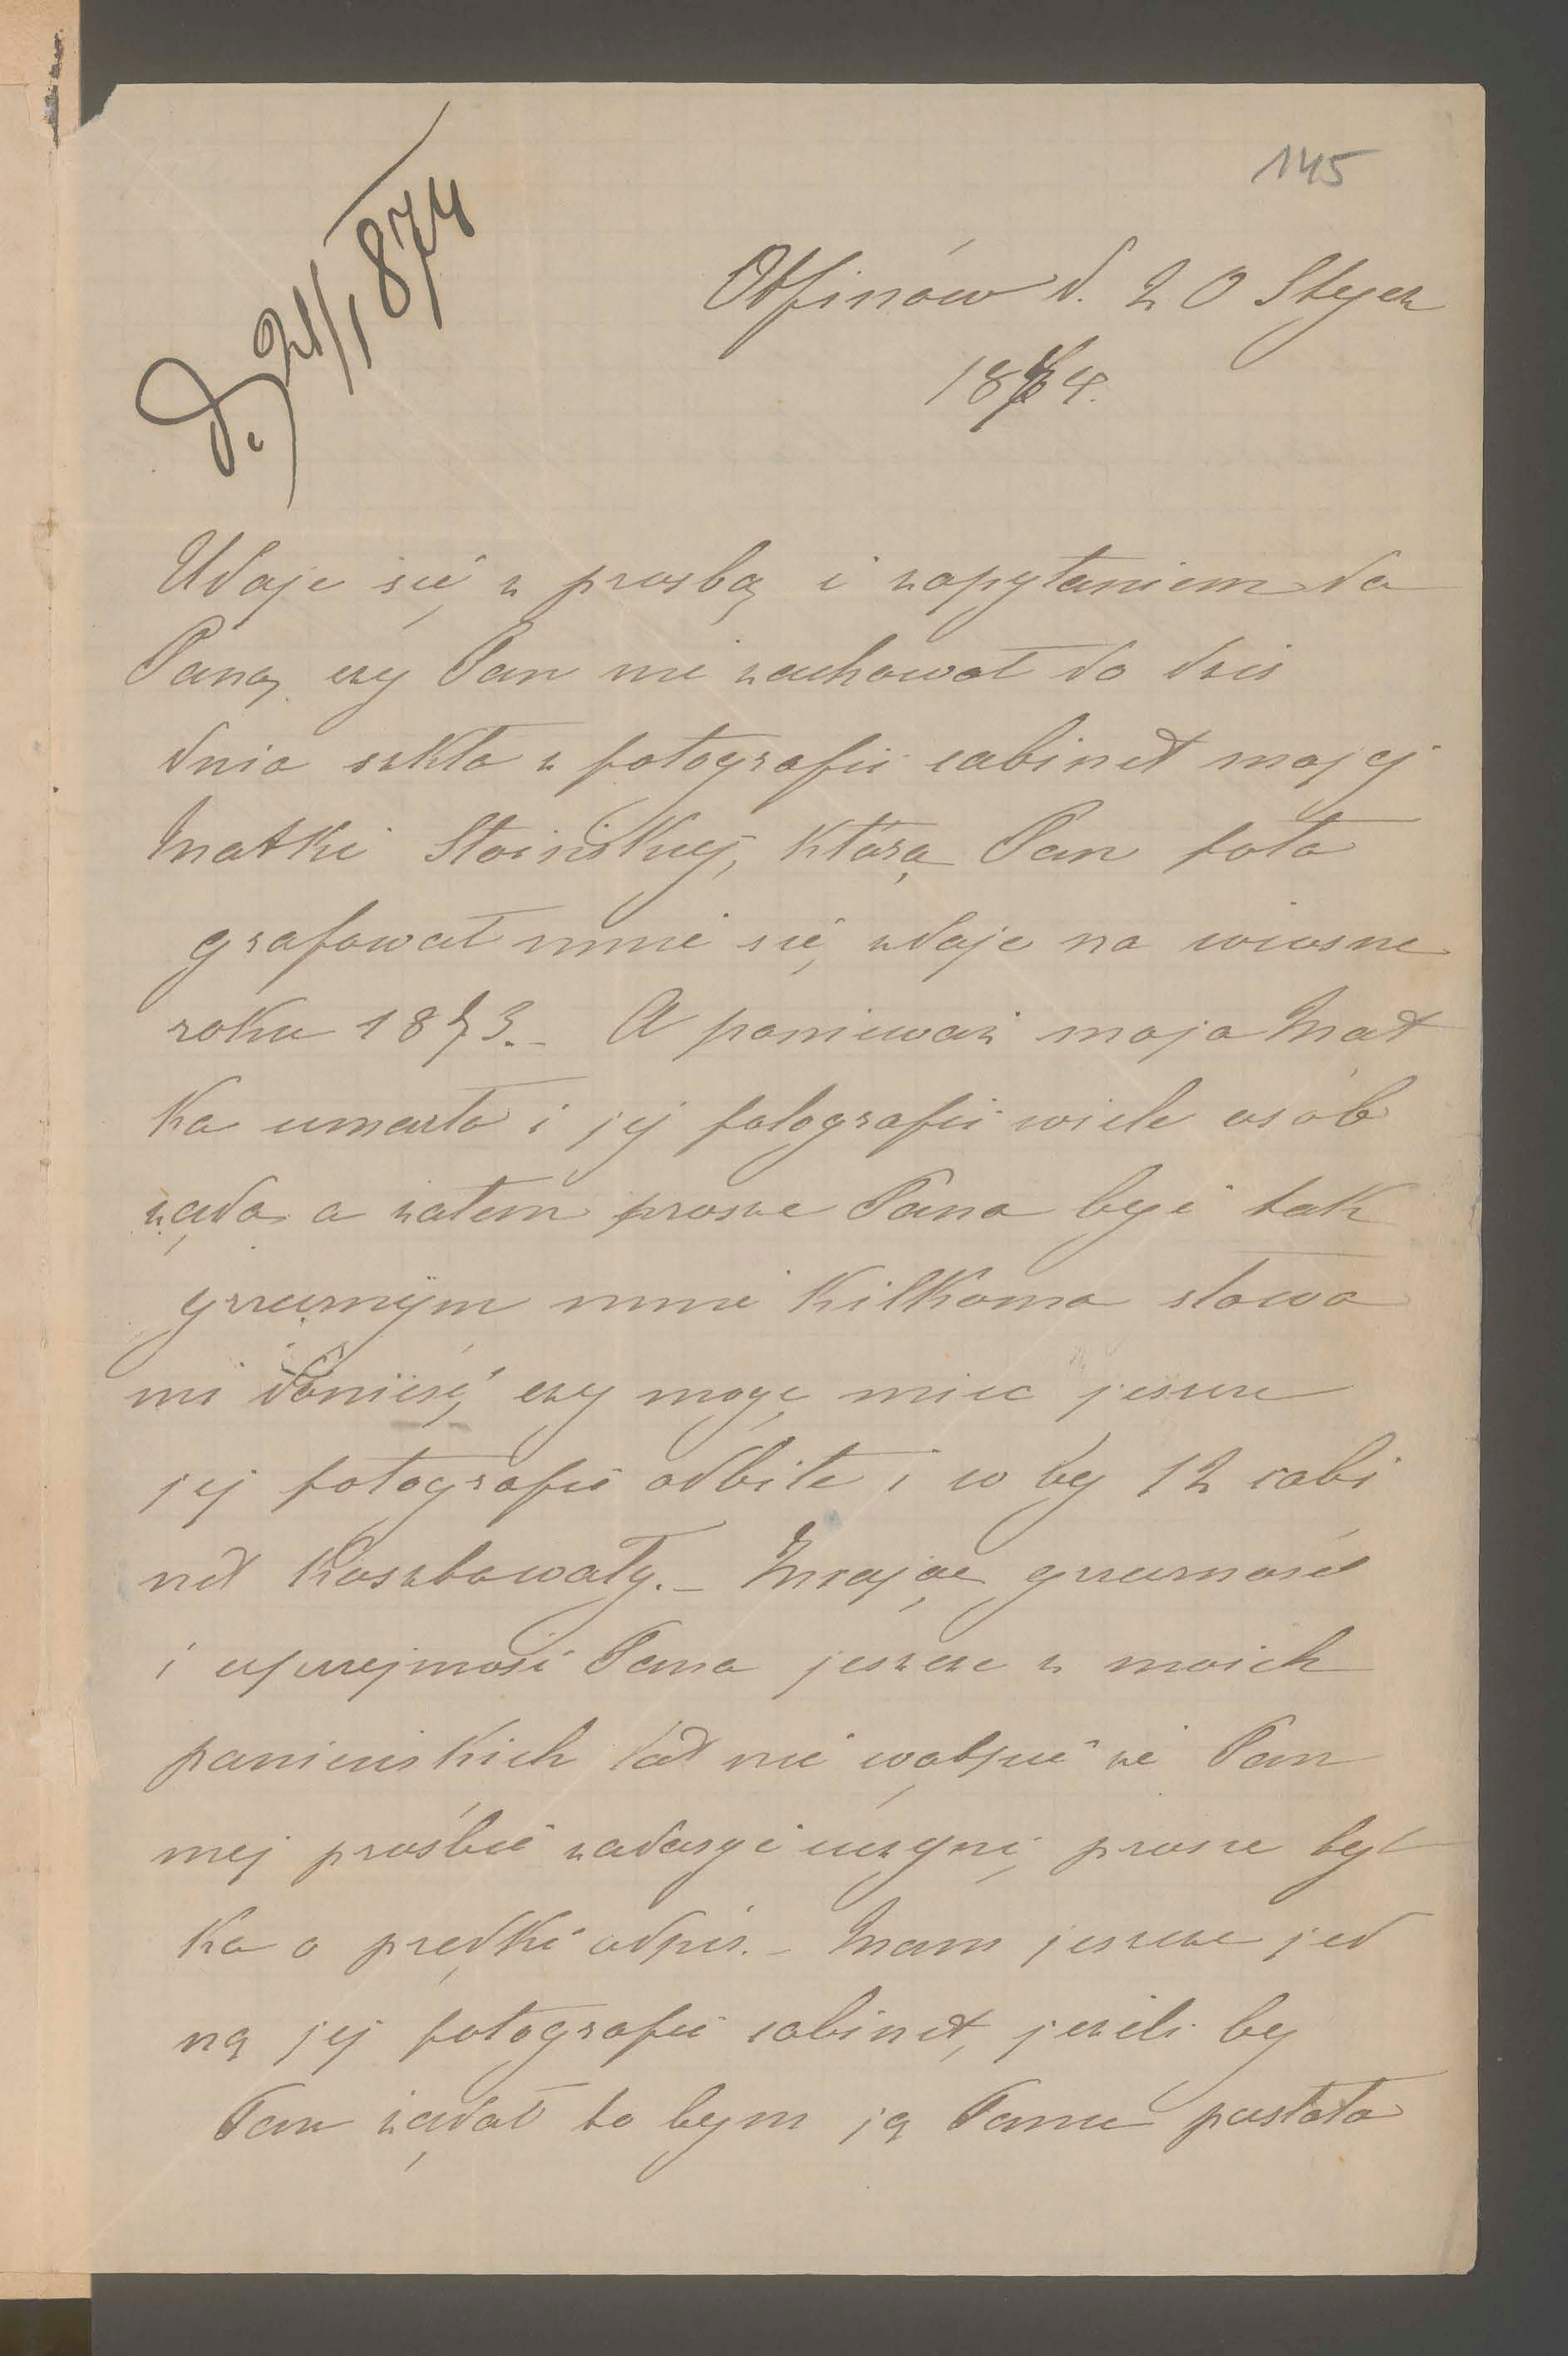 145
d. 21/1 874
Otfinów d. 20 Stycz
1874.
Udaje się z prosbą i zapytaniem do
Pana, czy Pan nie zachował do dziś
dnia szkła z fotografii cabinet mojej
Matki Stoińskiej, którą Pan foto
grafował mnie się zdaje na wiosne
roku 1873. – A ponieważ moja Mat
ka umarła i jej fotografii wiele osób
żąda a zatem prosze Pana być tak
grzecznym mnie kilkoma słowa
mi donieść, czy mogę miec jeszcze
jej fotografie odbite i co by 12 cabi
net kosztowały. – Znając grzeczność
i uprzejmość Pana jeszcze z moich
panieńskich lat nie wątpie że Pan
mej prośbie zadosyć uczyni, prosze tyl
ko o prędki odpis. – Mam jeszcze jed
ną jej fotografie cabinet, jeżeli by
Pan żądał to bym ją Panu posłała